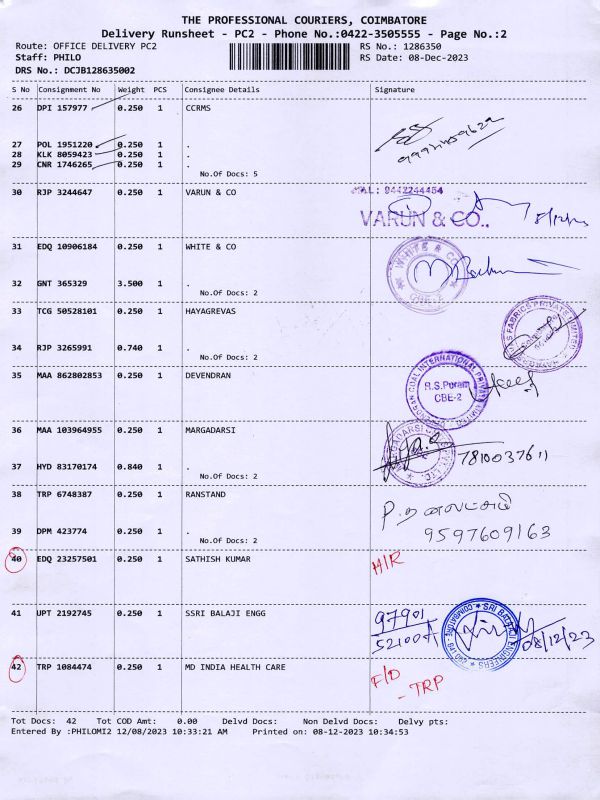 THE PROFESSIONAL COURIERS, COIMBATORE
Delivery Runsheet - PC2 - Phone No.:0422-3505555 - Page No.:2
Route: OFFICE DELIVERY PC2 RS No.: 1286350
Staff: PHILO RS Date: 08-Dec-2023
DRS No.: DCJB128635002
S No Consignment No Weight PCS Consignee Details Signature
26 DPI 157977 0.250 1 CCRMS
27 POL 1951220 0.250 1 .
28 KLK 8059423 0.250 1 .
29 CNR 1746265 0.250 1 .
No.Of Docs: 5
30 RJP 3244647 0.250 1 VARUN & CO
VARUN & CO.,
8/12/23
31 EDQ 10906184 0.250 1 WHITE & CO
WHITE & CO
CBE-2
32 GNT 365329 3.500 1 .
No.Of Docs: 2
33 TCG 50528101 0.250 1 HAYAGREVAS
34 RJP 3265991 0.740 1 .
No.Of Docs: 2
35 MAA 862802853 0.250 1 DEVENDRAN
R.S.Puram
CBE-2
36 MAA 103964955 0.250 1 MARGADARSI
7810037611
37 HYD 83170174 0.840 1 .
No.Of Docs: 2
38 TRP 6748387 0.250 1 RANSTAND
39 DPM 423774 0.250 1 .
9597609163
No.Of Docs: 2
40 EDQ 23257501 0.250 1 SATHISH KUMAR H/R
41 UPT 2192745 0.250 1 SSRI BALAJI ENGG 97901
52100A
08/12/23
42 TRP 1084474 0.250 1 MD INDIA HEALTH CARE F/D
- TRP
Tot Docs: 42 Tot COD Amt: 0.00 Delvd Docs: Non Delvd Docs: Delvy pts:
Entered By :PHILOMI2 12/08/2023 10:33:21 AM Printed on: 08-12-2023 10:34:53